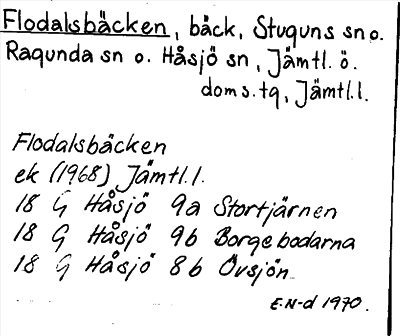 Flodalsbäcken, bäck, Stuguns sn o.
Ragunda sn o. Håsjö sn, Jämtl. ö.
doms.tg, Jämtl.l.
Flodalsbäcken
ek (1968) Jämtl.l.
18 G Håsjö 9a Stortjärnen
18 G Håsjö 9b Borgebodarna
18 G Håsjö 8b Övsjön
E.N-d 1970.